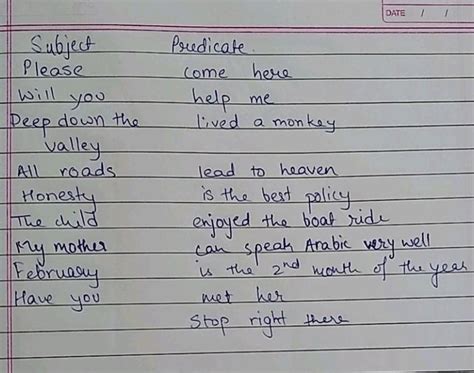 DATE / /
Subject Predicate.
Please come here
Will you help me
Deep down the lived a monkey
valley
All roads lead to heaven
Honesty is the best policy
The child enjoyed the boat ride
My mother can speak Arabic very well
February is the 2nd month of the year
Have you met her
Stop right there